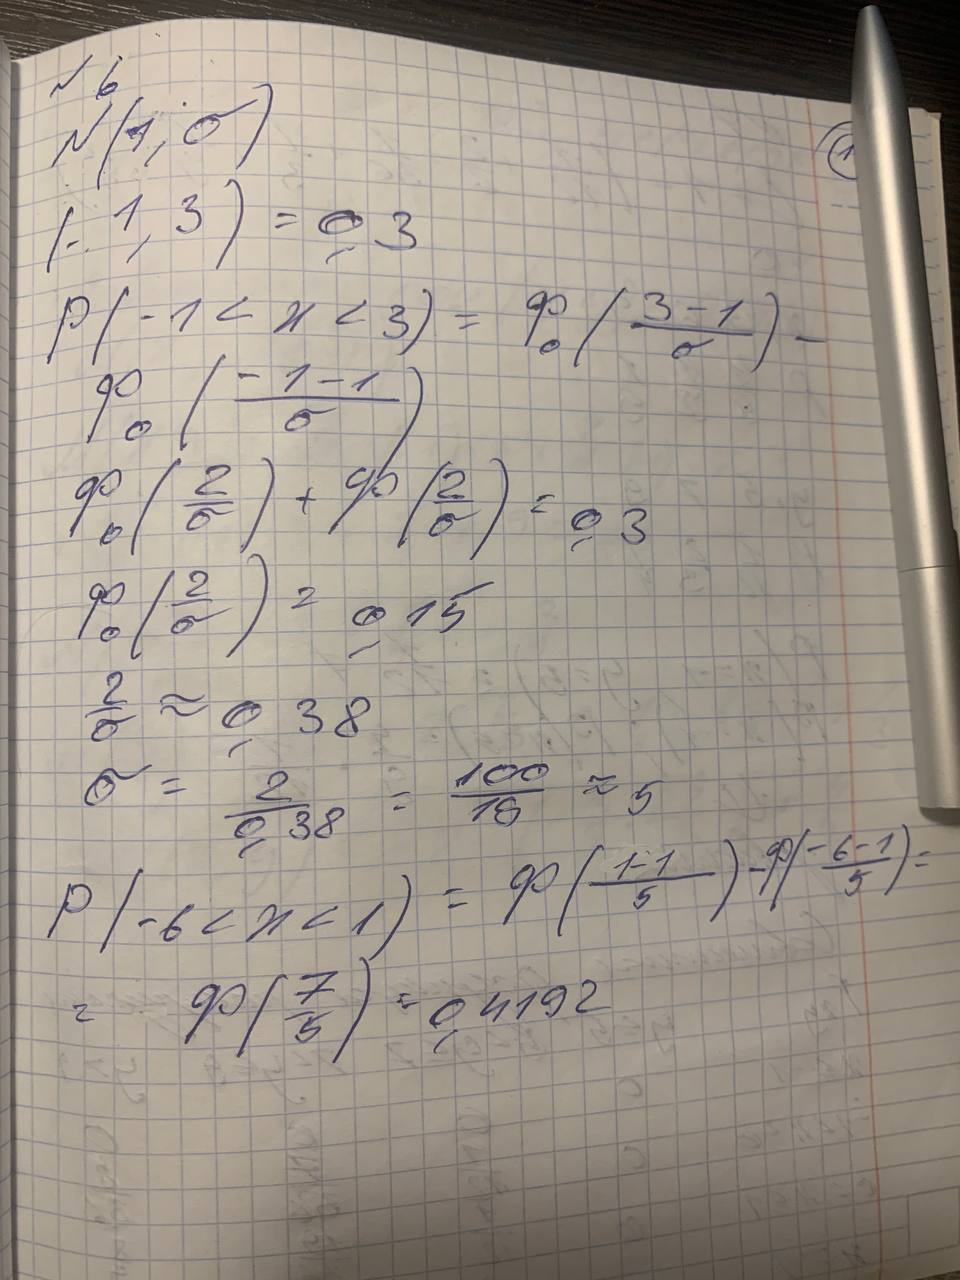 № 6
N(1, σ)
(-1, 3) = 0,3
P(-1 < x < 3) = Φ₀(3-1/σ) -
Φ₀(-1-1/σ)
Φ₀(2/σ) + Φ(2/σ) = 0,3
Φ₀(2/σ) = 0,15
2/σ ≈ 0,38
σ = 2/0,38 = 100/18 ≈ 5
P(-6 < x < 1) = Φ(1-1/5) - Φ(-6-1/5) =
= Φ(7/5) = 0,4192
1